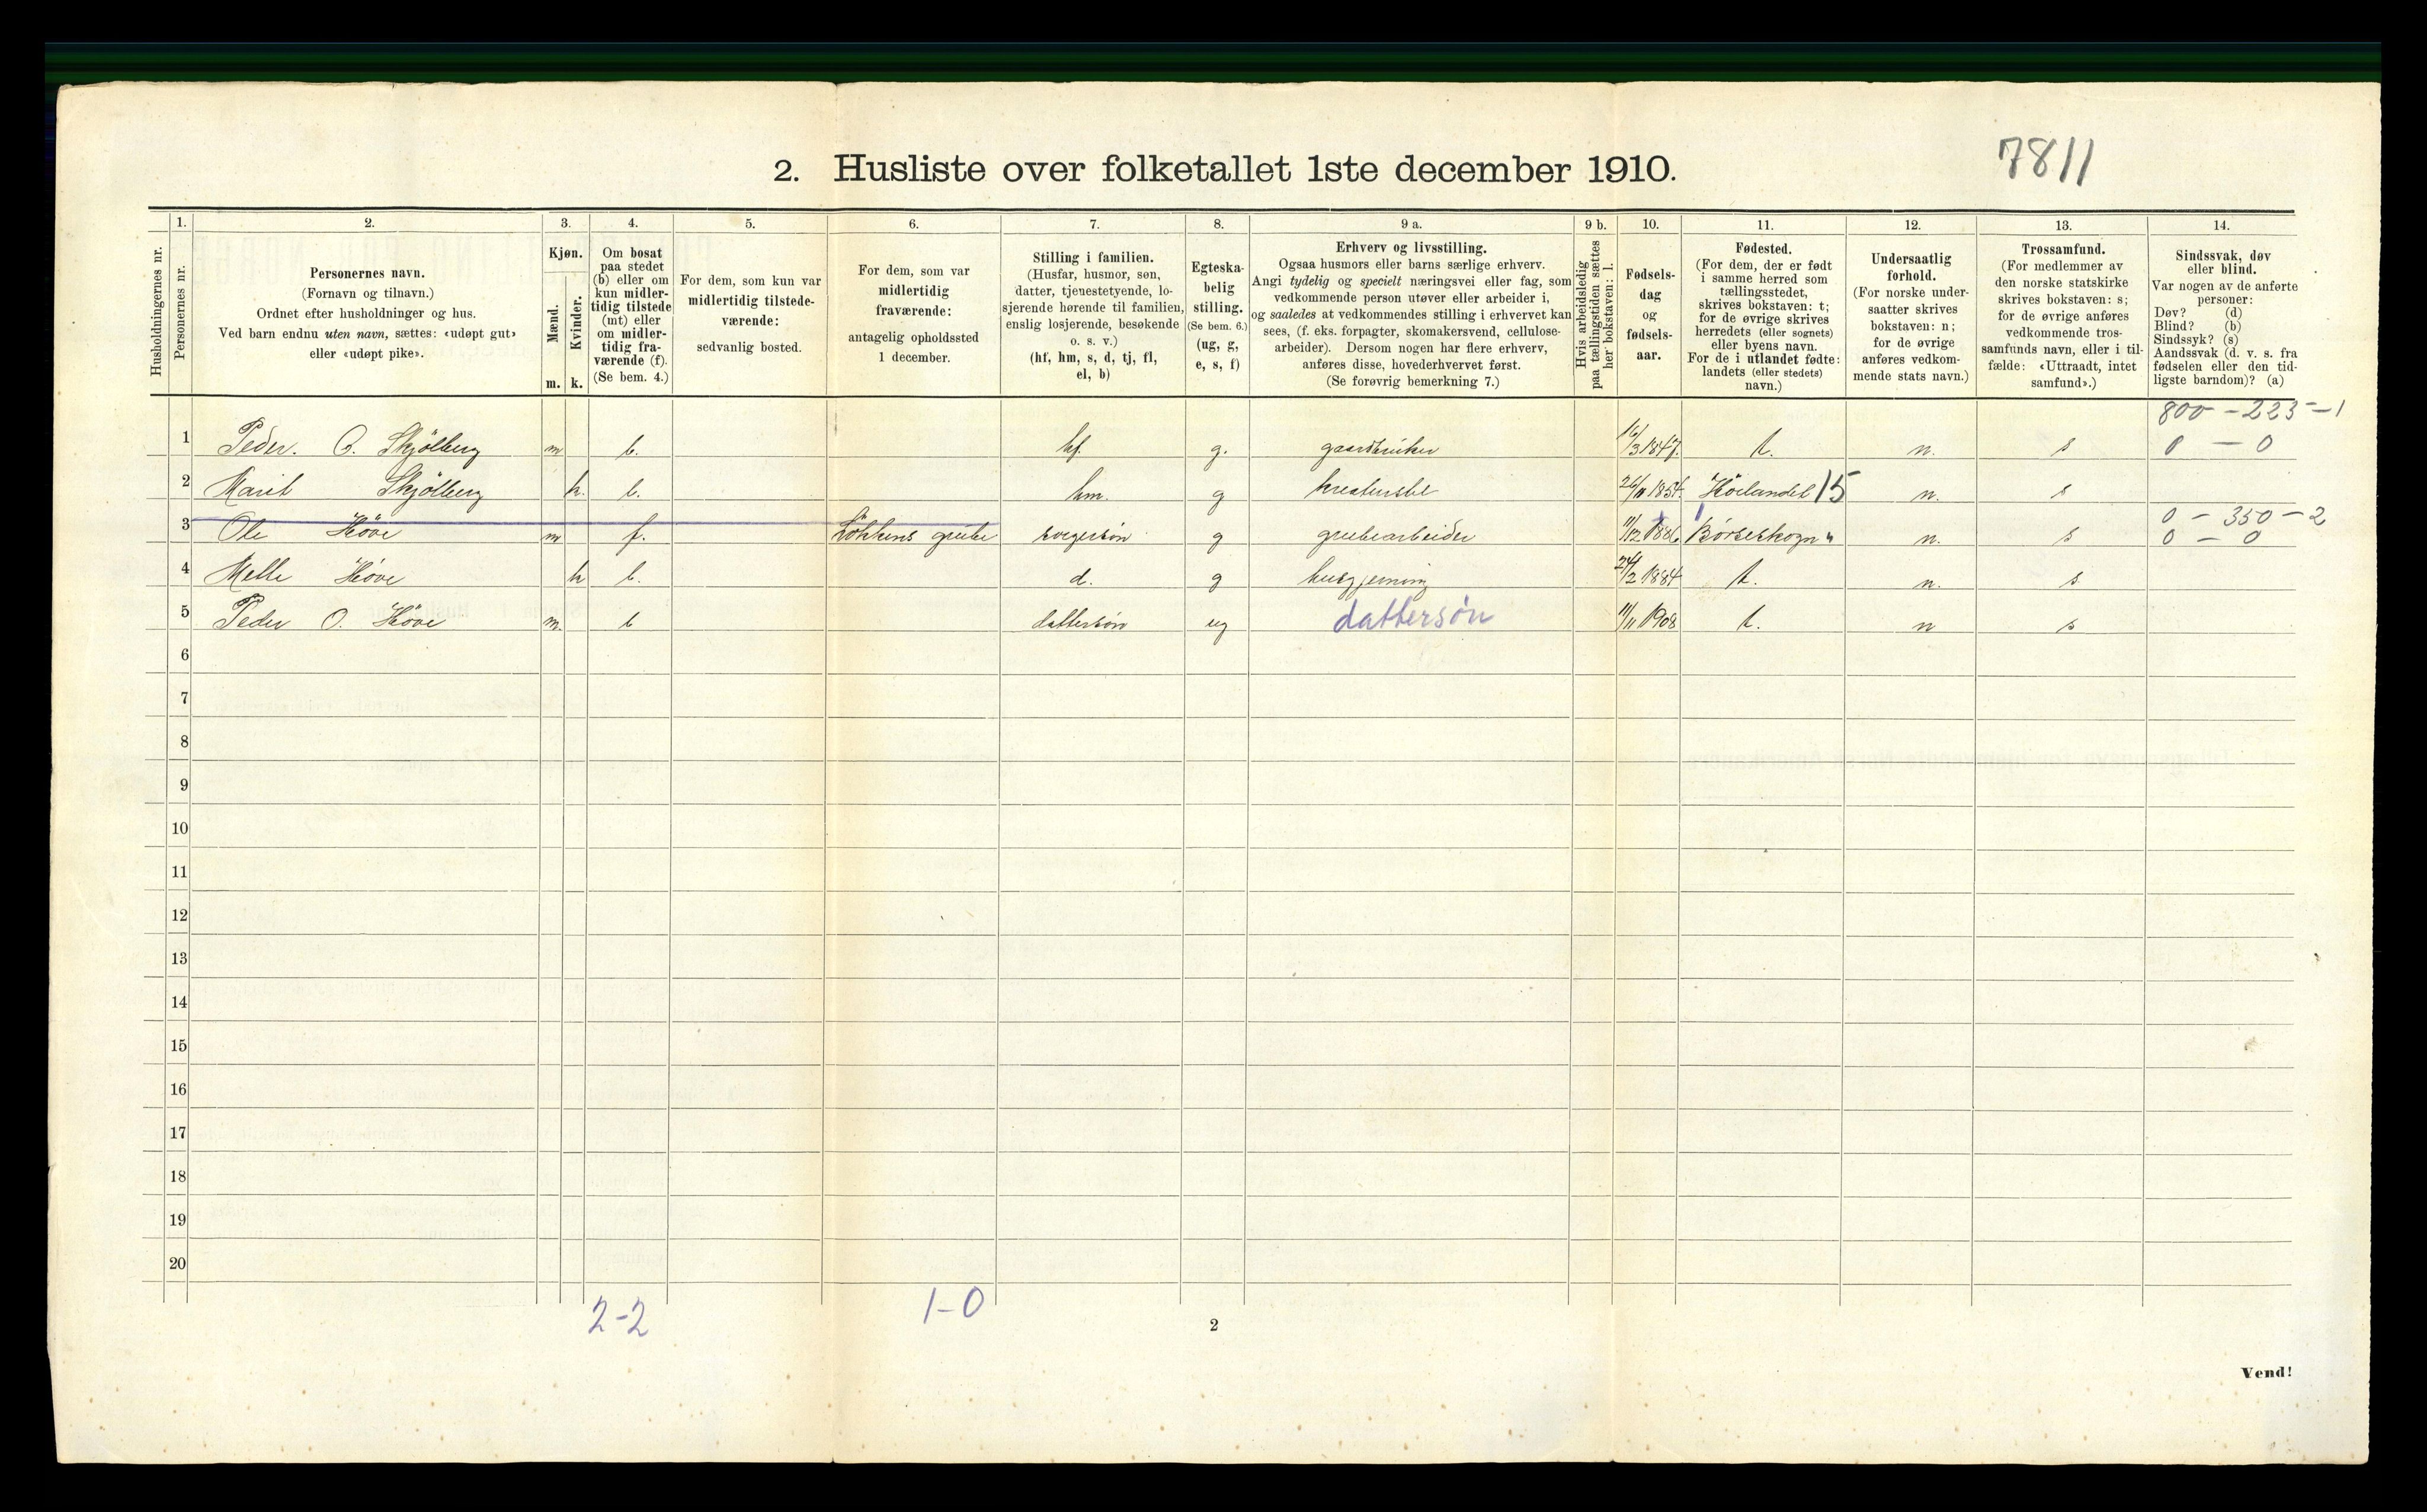 7811
2. Husliste over folketallet 1ste december 1910.
Husholdningernes nr.
1.
Personernes nr.
2.
Personernes navn.
(Fornavn og tilnavn.)
Ordnet efter husholdninger og hus.
Ved barn endnu uten navn, sættes: «udøpt gut»
eller «udøpt pike».
3.
Kjøn.
Mænd.
Kvinder.
m. k.
4.
Om bosat
paa stedet
(b) eller om
kun midler-
tidig tilstede
(mt) eller
om midler-
tidig fra-
værende (f).
(Se bem. 4.)
5.
For dem, som kun var
midlertidig tilstede-
værende:
sedvanlig bosted.
6.
For dem, som var
midlertidig
fraværende:
antagelig opholdssted
1 december.
7.
Stilling i familien.
(Husfar, husmor, søn,
datter, tjenestetyende, lo-
sjerende hørende til familien,
enslig losjerende, besøkende
o. s. v.)
(hf, hm, s, d, tj, fl,
el, b)
8.
Egteska-
belig
stilling.
(Se bem. 6.)
(ug, g,
e, s, f)
9 a.
Erhverv og livsstilling.
Ogsaa husmors eller barns særlige erhverv.
Angi tydelig og specielt næringsvei eller fag, som
vedkommende person utøver eller arbeider i,
og saaledes at vedkommendes stilling i erhvervet kan
sees, (f. eks. forpagter, skomakersvend, cellulose-
arbeider). Dersom nogen har flere erhverv,
anføres disse, hovederhvervet først.
(Se forøvrig bemerkning 7.)
9 b.
Hvis arbeidsledig
paa tællingstiden sættes
her bokstaven: l.
10.
Fødsels-
dag
og
fødsels-
aar.
11.
Fødested.
(For dem, der er født
i samme herred som
tællingsstedet,
skrives bokstaven: t;
for de øvrige skrives
herredets (eller sognets)
eller byens navn.
For de i utlandet fødte:
landets (eller stedets)
navn.)
12.
Undersaatlig
forhold.
(For norske under-
saatter skrives
bokstaven: n;
for de øvrige
anføres vedkom-
mende stats navn.)
13.
Trossamfund.
(For medlemmer av
den norske statskirke
skrives bokstaven: s;
for de øvrige anføres
vedkommende tros-
samfunds navn, eller i til-
fælde: «Uttraadt, intet
samfund».)
14.
Sindssvak, døv
eller blind.
Var nogen av de anførte
personer:
Døv? (d)
Blind? (b)
Sindssyk? (s)
Aandssvak (d. v. s. fra
fødselen eller den tid-
ligste barndom)? (a)
800 - 223 - 1
1 Peder. O. Skjölberg m b. hf. g. gaardbruker 16/3 1847. t. n. s 0 - 0
2 Marit Skjölberg k. b. hm. g kreaturstel 26/11 1854. Höilandet 15 n. s
0 - 350 - 2
3 Ole Höve m f. Lökkens grube svigersön g grubearbeider 11/12 1886 Börseskogn " n. s 0 - 0
4 Melle Höve k b. d. g husgjerning 24/2 1884 t. n. s
5 Peder O. Höve m. b dattersön ug dattersøn 11/11 1908 t. n s
6
7
8
9
10
11
12
13
14
15
16
17
18
19
20
2-2 1-0
2
Vend!